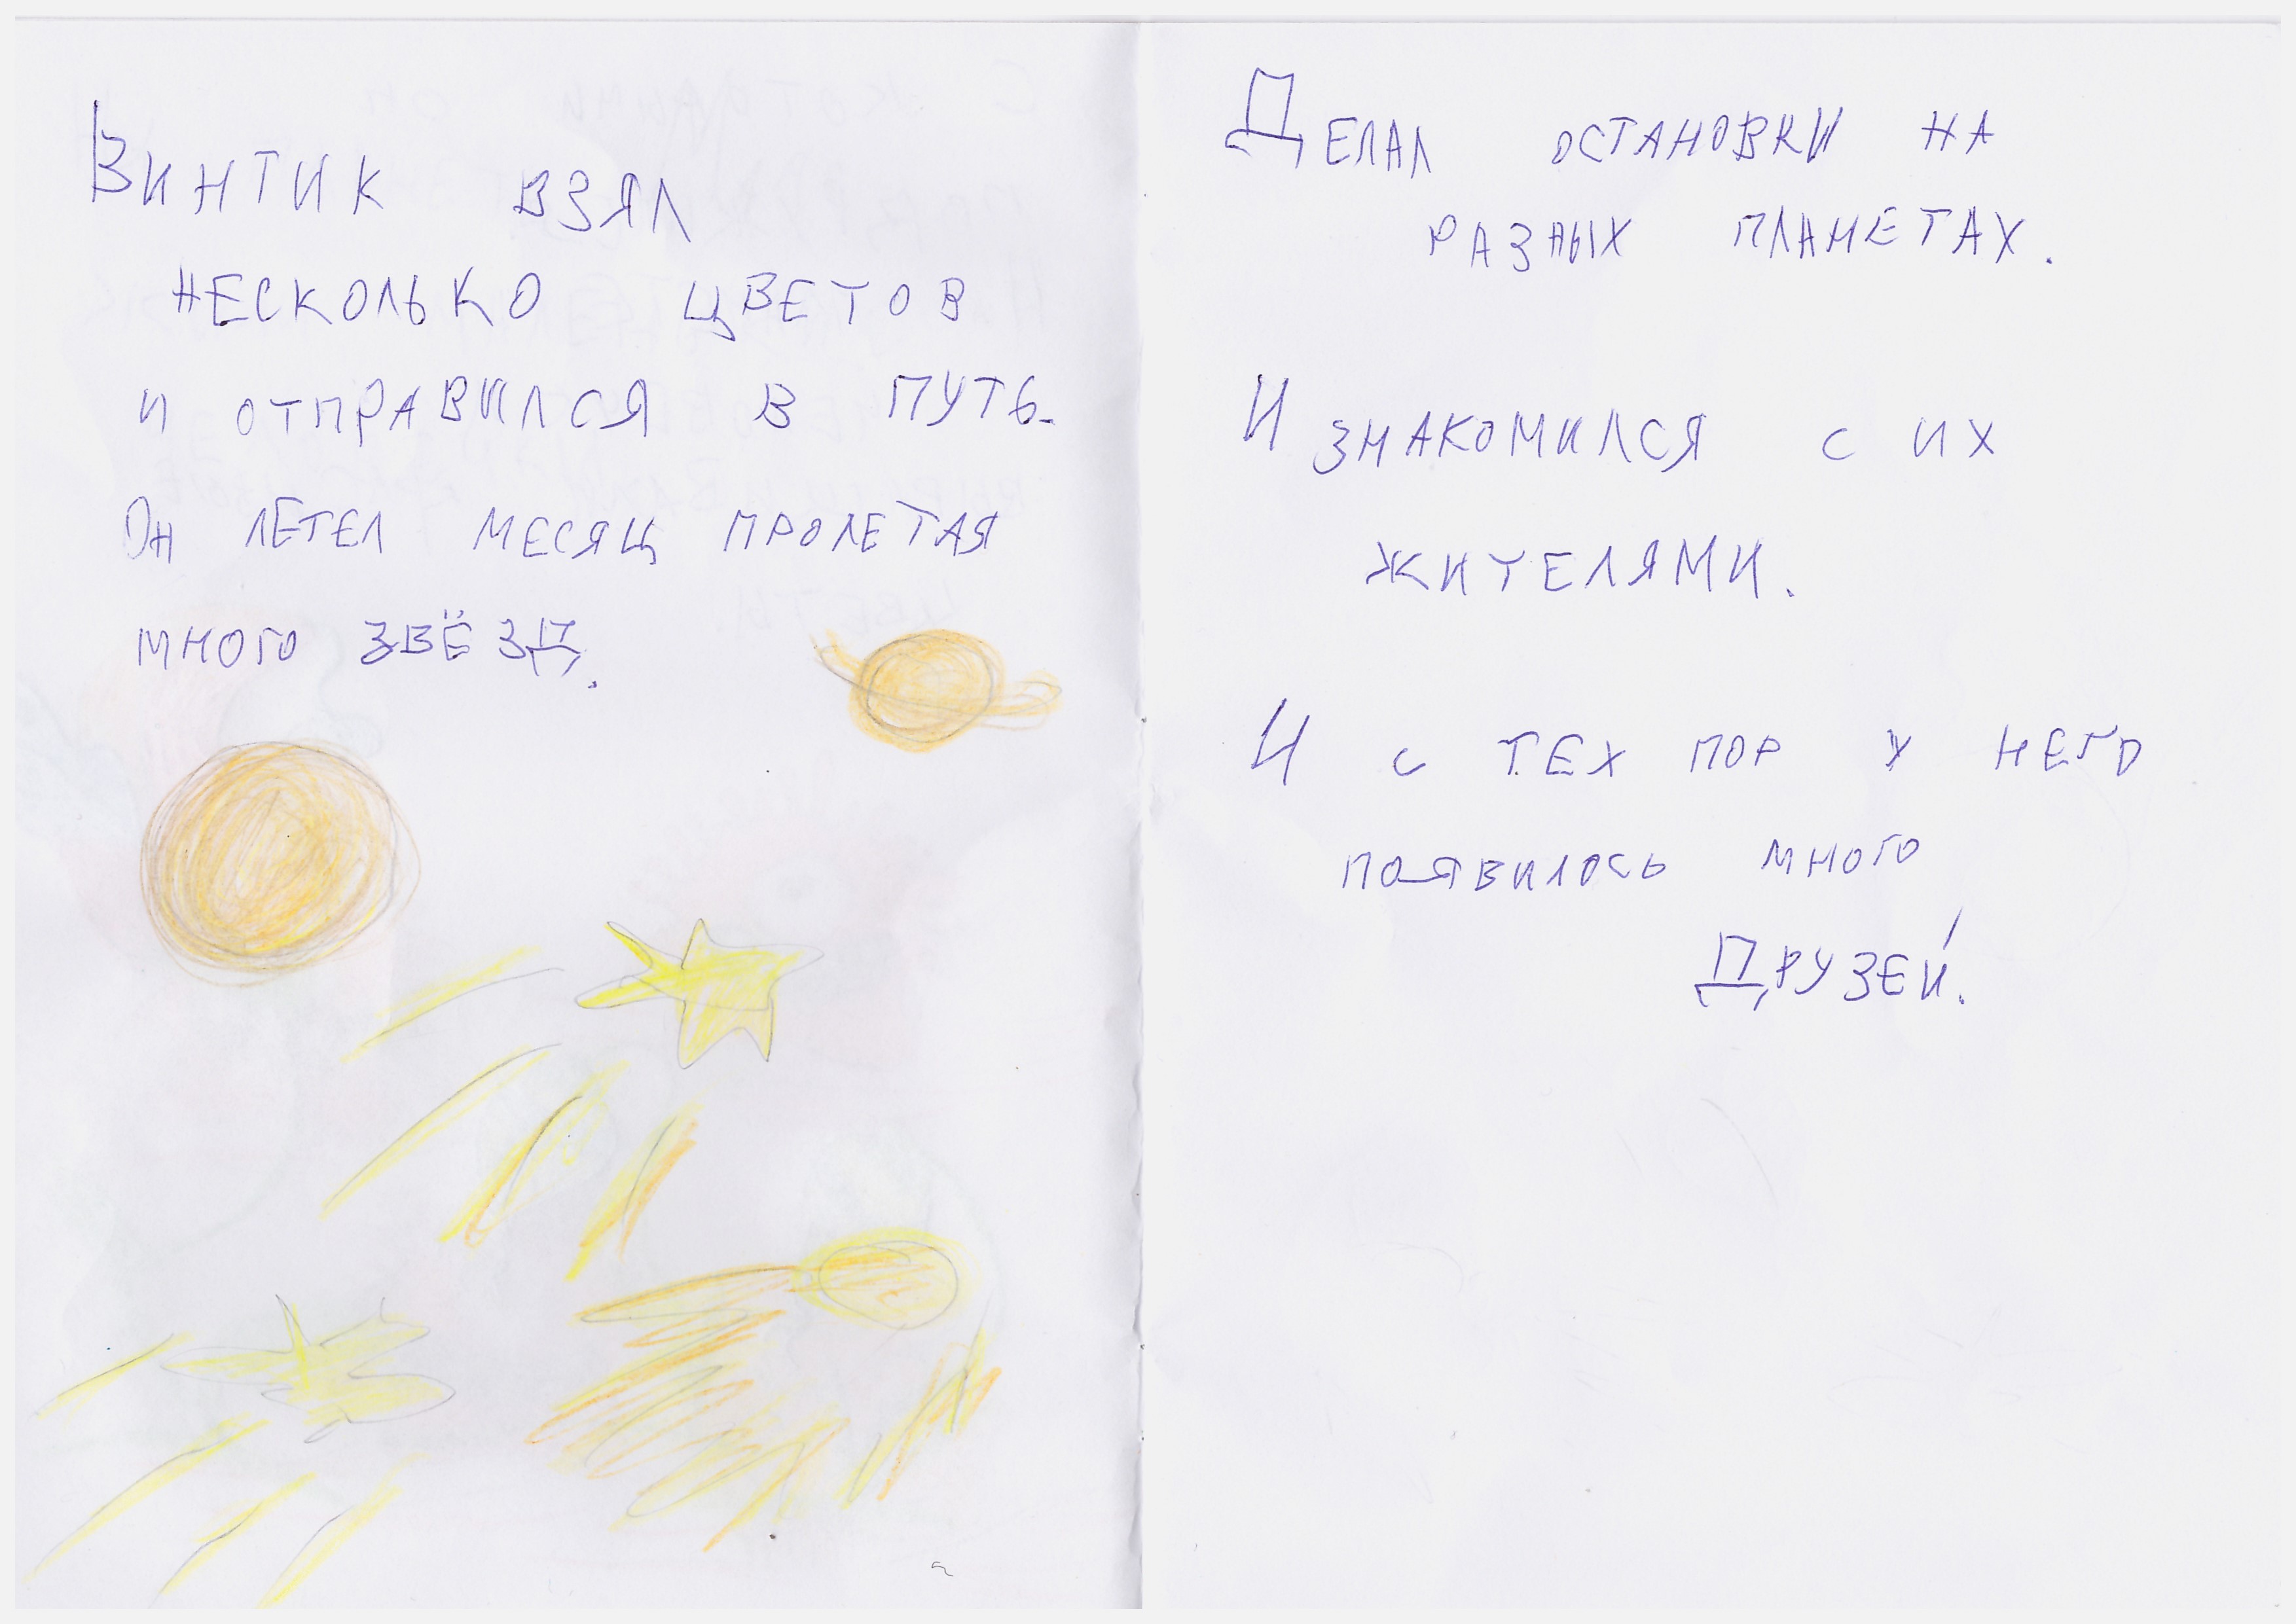 Винтик взял
несколько цветов
и отправился в путь.
Он летел месяц пролетая
много звёзд.
Делал остановки на
разных планетах.
И знакомился с их
жителями.
И с тех пор у него
появилось много
друзей!